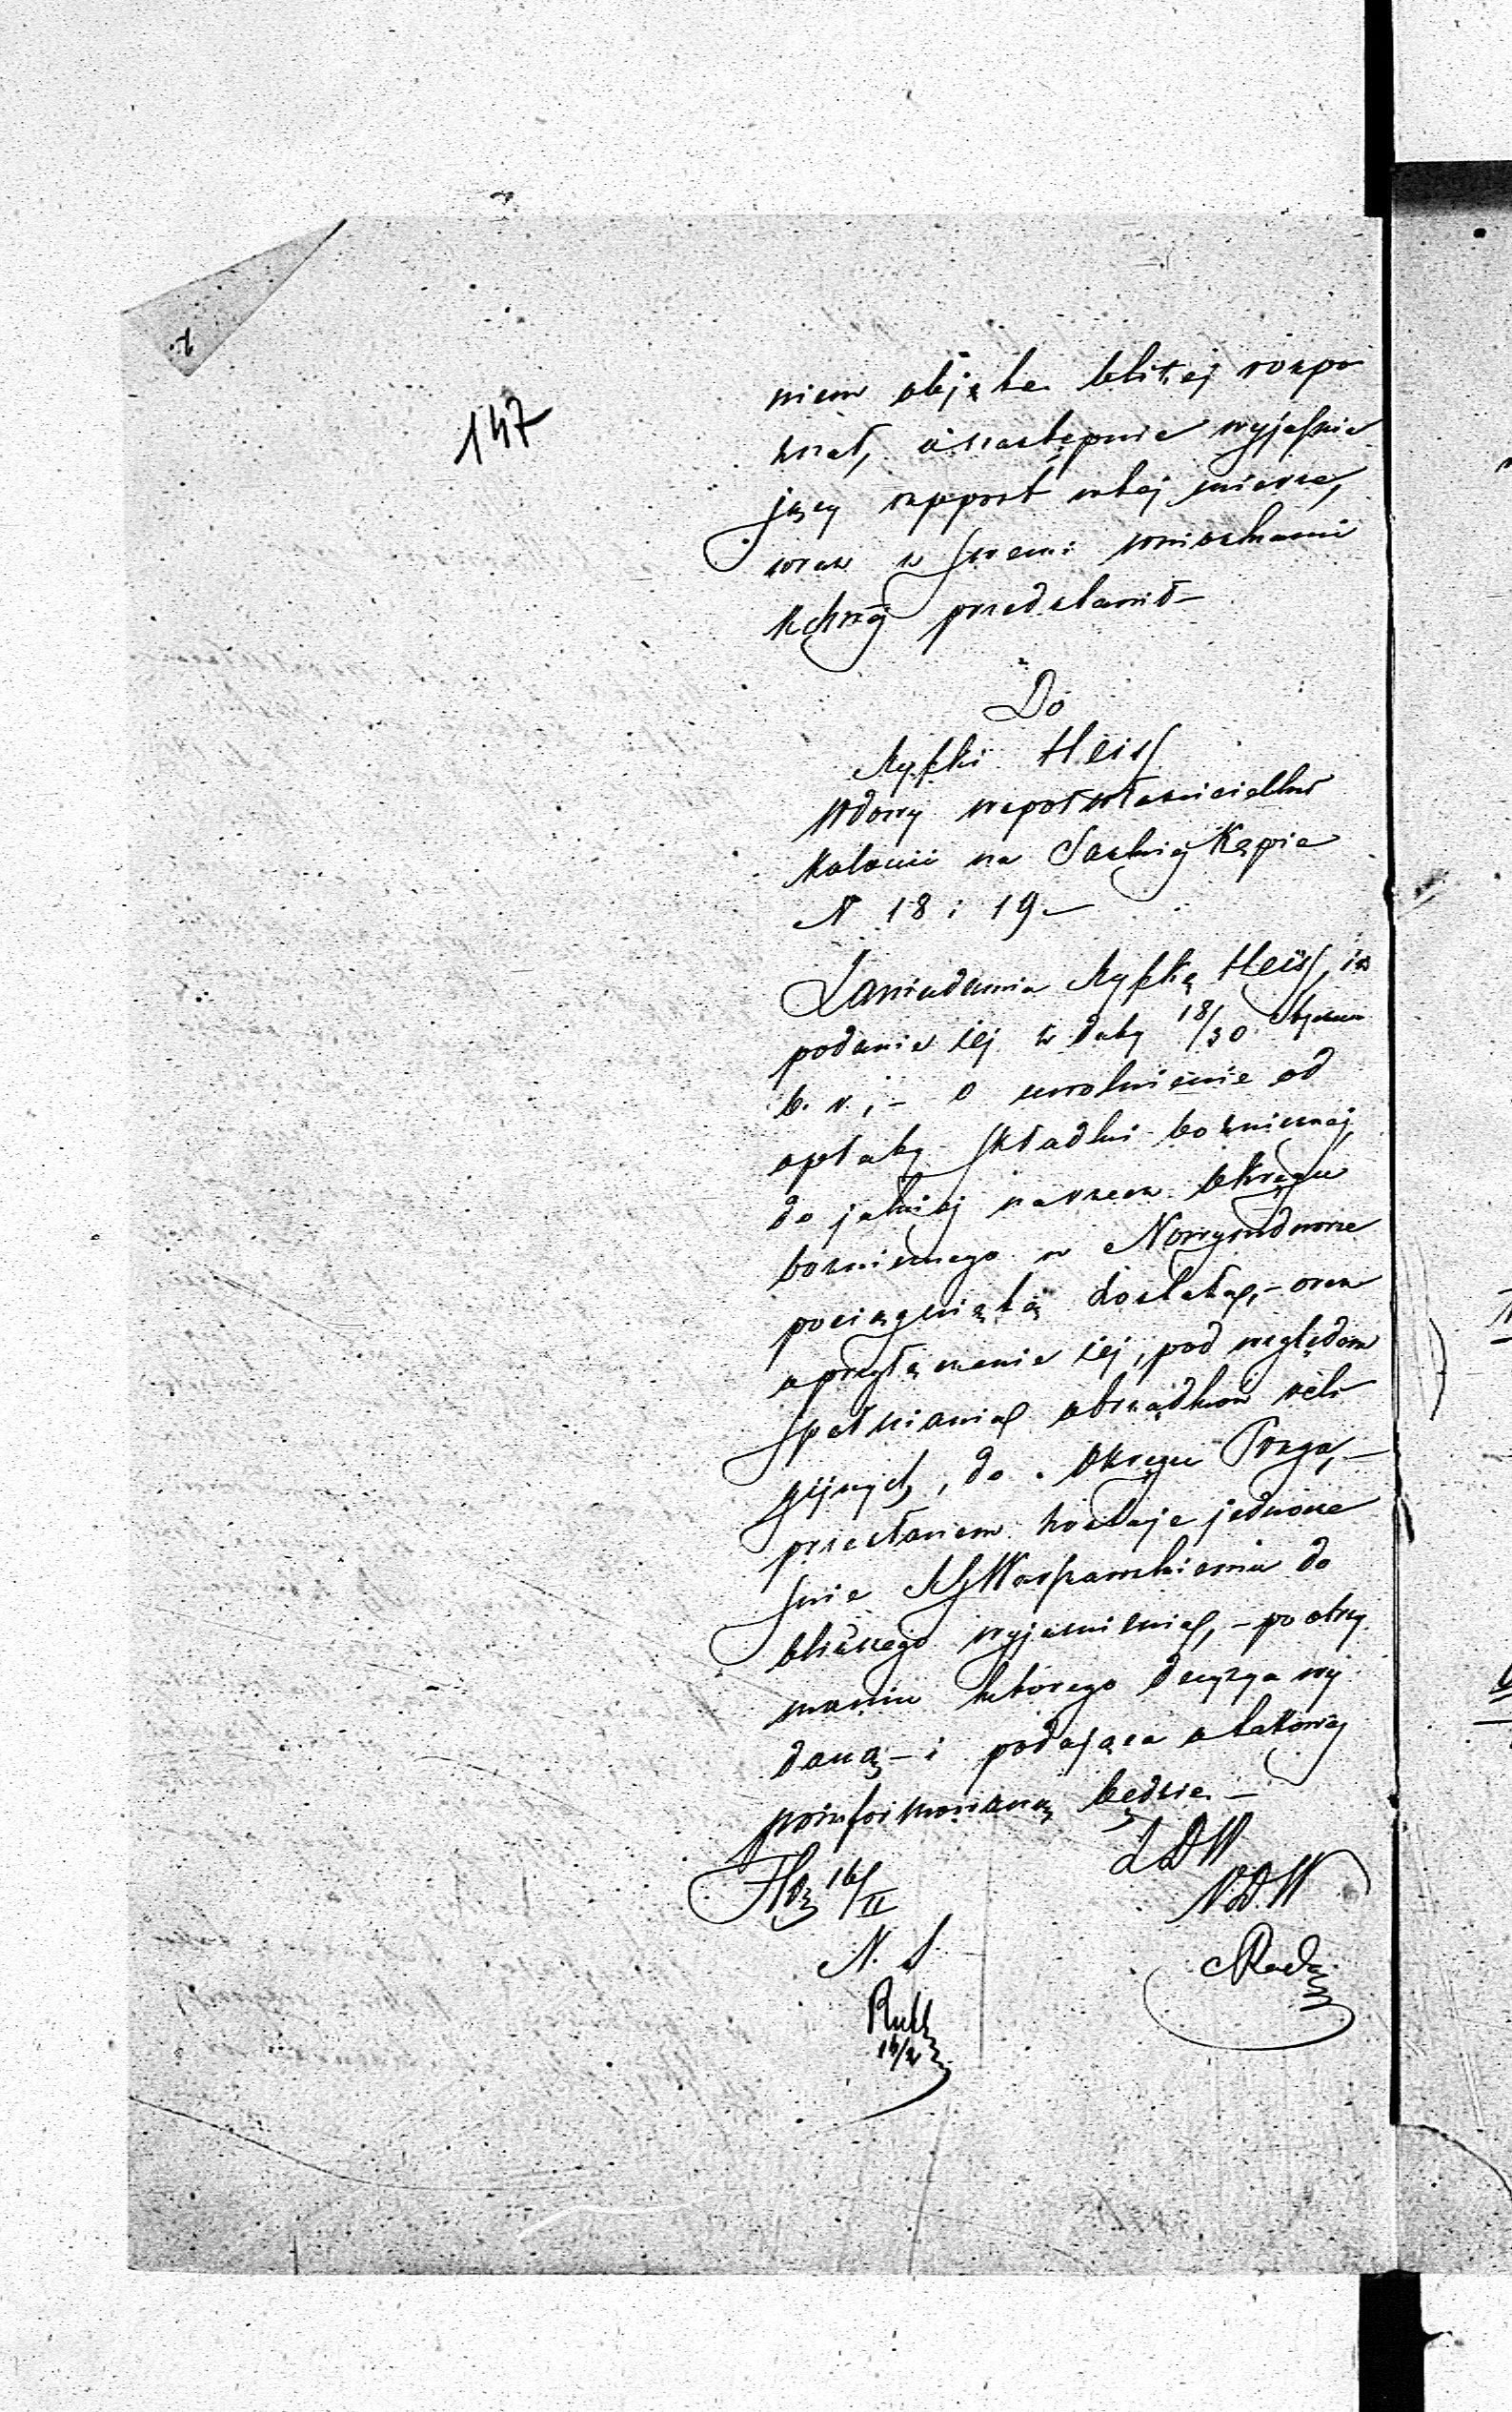 147
niem objęte bliżej rozpo
znał, a następnie wyjaśnia
jący rapport w tej mierze,
wraz z swemi wnioskami
przedstawił —
Do
Ryfki Heiss
Wdowy współwłaścicielki
Kolonii na Saskiej Kępie
N 18 i 19 —
Zawiadamia Ryfkę Heiss, iż
podanie iej z daty 18/30 Stycznia
b. r., – o uwolnienie od
opłaty składki bożniczej,
do jakiej na rzecz okręgu
bożniczego w Nowymdworze
pociągniętą została, – oraz
o przyłączenie iej, pod względem
spełniania obrządków reli
gijnych, do Okręgu Praga, –
przesłanem zostaje jednocze
śnie Warszawskiemu do
bliższego wyjaśnienia, – po otrzy
maniu którego decyzya wy
daną – i podająca o takowej
poinformowaną będzie. –
16/II
N. S.
16/2